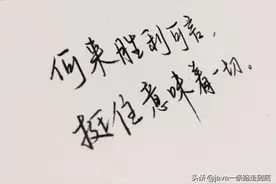 何来胜利可言，
挺住意味着一切。
头条 @java一条路走到底